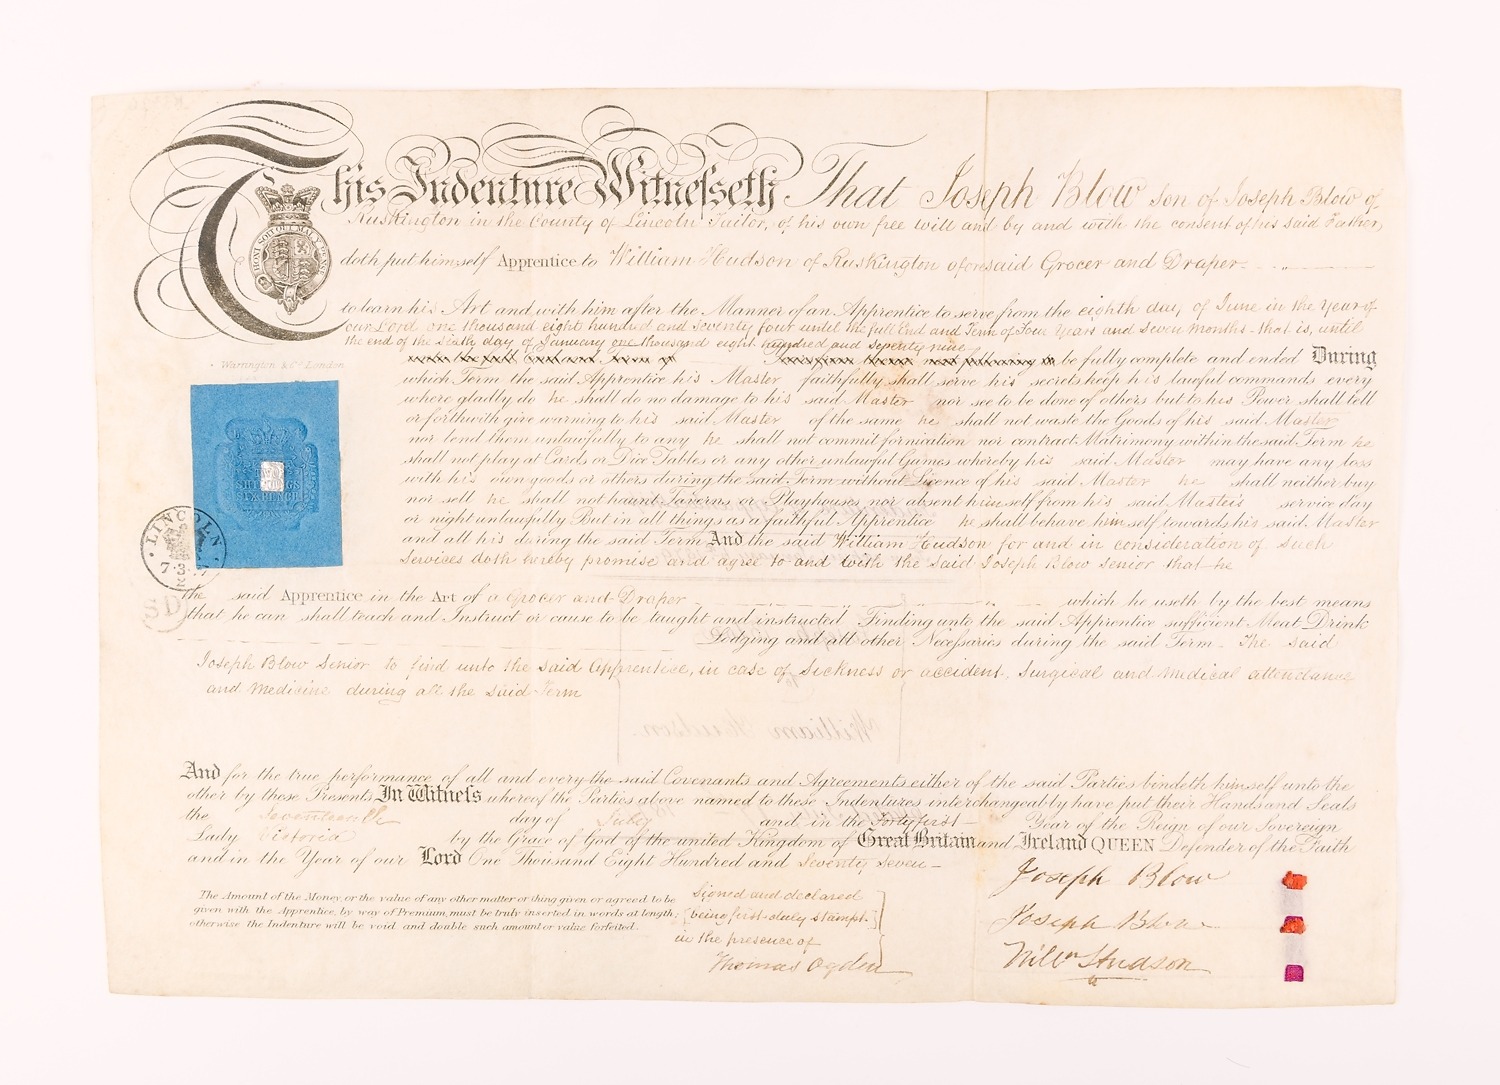 This Indenture Witnesseth That Joseph Blow Son of Joseph Blow of
Ruskington in the County of Lincoln Tailor, of his own free will and by and with the consent of his said Father,
doth put himself Apprentice to William Hudson of Ruskington aforesaid Grocer and Draper
to learn his Art and with him after the Manner of an Apprentice to serve from the eighth day of June in the Year of
our Lord one thousand eight hundred and seventy four until the full End and Term of Four Years and Seven Months - that is, until
the end of the sixth day of January one thousand eight hundred and seventy nine
be fully complete and ended During
HONI SOIT QUI MAL Y PENSE
Warrington & Co. London
which Term the said Apprentice his Master faithfully shall serve his secrets keep his lawful commands every
where gladly do he shall do no damage to his said Master nor see to be done of others but to his Power shall tell
or forthwith give warning to his said Master of the same he shall not waste the Goods of his said Master
nor lend them unlawfully to any he shall not commit fornication nor contract Matrimony within the said Term he
shall not play at Cards or Dice Tables or any other unlawful Games whereby his said Master may have any loss
with his own goods or others during the said Term without Licence of his said Master he shall neither buy
nor sell he shall not haunt Taverns or Playhouses nor absent himself from his said Master's service day
or night unlawfully But in all things as a faithful Apprentice he shall behave himself towards his said Master
and all his during the said Term And the said William Hudson for and in consideration of such
Services doth hereby promise and agree to and with the said Joseph Blow Senior that he
SHILLINGS
SIX PENCE
LINCOLN
SD
the said Apprentice in the Art of a Grocer and Draper which he useth by the best means
that he can shall teach and Instruct or cause to be taught and instructed Finding unto the said Apprentice sufficient Meat Drink
Lodging and all other Necessaries during the said Term. The said
Joseph Blow Senior to find unto the said Apprentice, in case of Sickness or accident, Surgical and Medical attendance
and Medicine during all the said Term
William Hudson.
And for the true performance of all and every the said Covenants and Agreements either of the said Parties bindeth himself unto the
other by these Presents In Witness whereof the Parties above named to these Indentures interchangeably have put their Hands and Seals
the Seventeenth day of July and in the Forty first Year of the Reign of our Sovereign
Lady Victoria by the Grace of God of the united Kingdom of Great Britain and Ireland QUEEN Defender of the Faith
and in the Year of our Lord One Thousand Eight Hundred and Seventy Seven
The Amount of the Money, or the value of any other matter or thing given or agreed to be
given with the Apprentice, by way of Premium, must be truly inserted in words at length;
otherwise the Indenture will be void and double such amount or value forfeited.
Signed and declared
(being first duly stampt)
in the presence of
Thomas Ogden
Joseph Blow
Joseph Blow
Willm Hudson